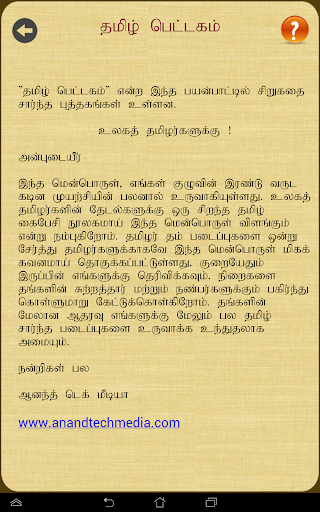 தமிழ் பெட்டகம்
?
"தமிழ் பெட்டகம்" என்ற இந்த பயன்பாட்டில் சிறுகதை
சார்ந்த புத்தகங்கள் உள்ளன.
உலகத் தமிழர்களுக்கு !
அன்புடையீர்
இந்த மென்பொருள், எங்கள் குழுவின் இரண்டு வருட
கடின முயற்சியின் பலனால் உருவாகியுள்ளது. உலகத்
தமிழர்களின் தேடல்களுக்கு ஒரு சிறந்த தமிழ்
கைபேசி நூலகமாய் இந்த மென்பொருள் விளங்கும்
என்று நம்புகிறோம். தமிழர் தம் படைப்புகளை ஒன்று
சேர்த்து தமிழர்களுக்காகவே இந்த மென்பொருள் மிகக்
கவனமாய் தொகுக்கப்பட்டுள்ளது. குறையேதும்
இருப்பின் எங்களுக்கு தெரிவிக்கவும். நிறைகளை
தங்களின் சுற்றத்தார் மற்றும் நண்பர்களுக்கும் பகிர்ந்து
கொள்ளுமாறு கேட்டுக்கொள்கிறோம். தங்களின்
மேலான ஆதரவு எங்களுக்கு மேலும் பல தமிழ்
சார்ந்த படைப்புகளை உருவாக்க உந்துதலாக
அமையும்.
நன்றிகள் பல
ஆனந்த் டெக் மீடியா
www.anandtechmedia.com